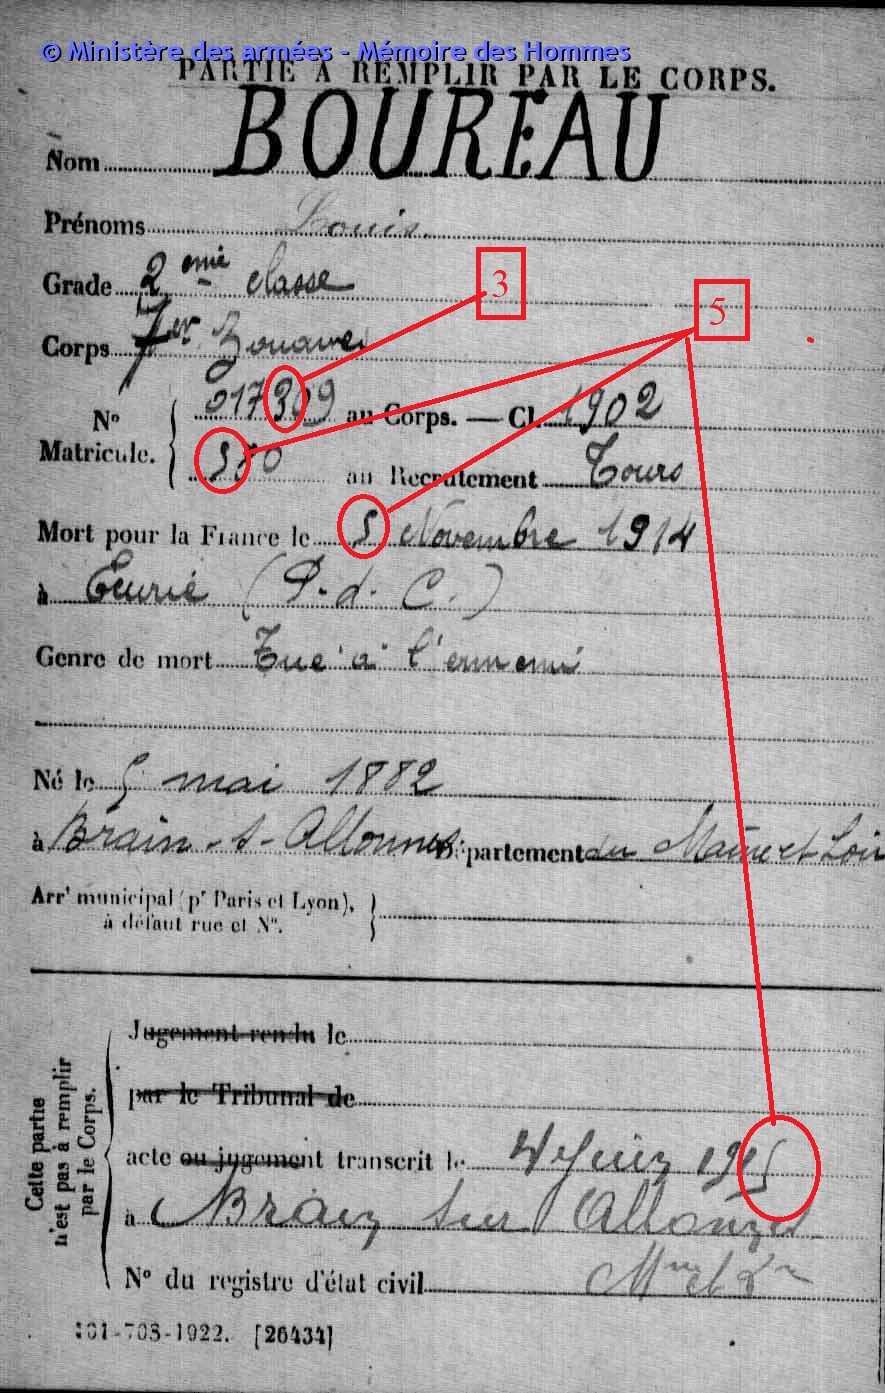 © Ministère des armées - Mémoire des Hommes
PARTIE À REMPLIR PAR LE CORPS.
Nom BOUREAU
Prénoms Louis
Grade 2 eme classe
3
5
Corps 1er Zouaves
N° Matricule. 017309 au Corps. — Cl. 1902
550 au Recrutement Tours
Mort pour la France le 5 Novembre 1914
à Ecurie (P. d. C.)
Genre de mort Tué à l'ennemi
Né le 5 mai 1882
à Brain-s-Allonnes Département du Maine et Loir
Arr' municipal (pr Paris et Lyon),
à défaut rue et N°.
Cette partie n'est pas à remplir par le Corps.
Jugement rendu le
par le Tribunal de
acte ou jugement transcrit le 4 Juin 1915
à Brain sur Allonnes
N° du registre d'état civil Mne et Lre
101-708-1922. [26434]